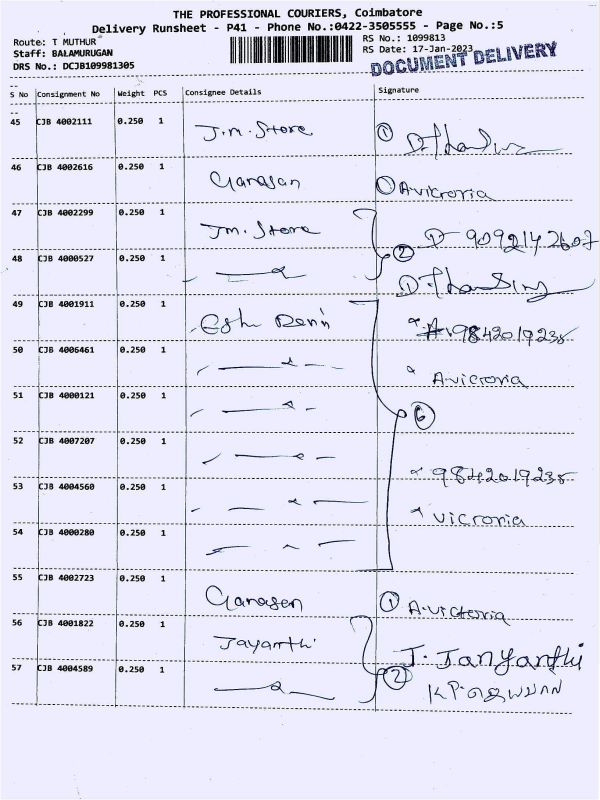 THE PROFESSIONAL COURIERS, Coimbatore
Delivery Runsheet - P41 - Phone No.:0422-3505555 - Page No.:5
Route: T MUTHUR
RS No.: 1099813
Staff: BALAMURUGAN
RS Date: 17-Jan-2023
DRS No.: DCJB109981305
DOCUMENT DELIVERY
S No Consignment No Weight PCS Consignee Details Signature
45 CJB 4002111 0.250 1 J.M. Store 1
46 CJB 4002616 0.250 1 Ganasan 1 A.vicroria
47 CJB 4002299 0.250 1 Jm. Store D- 9092142607
2
48 CJB 4000527 0.250 1
49 CJB 4001911 0.250 1 9842019238
50 CJB 4006461 0.250 1 A.vicroria
51 CJB 4000121 0.250 1 6
52 CJB 4007207 0.250 1 9842019238
53 CJB 4004560 0.250 1 vicroria
54 CJB 4000280 0.250 1
55 CJB 4002723 0.250 1 Ganasan 1 A.victoria
56 CJB 4001822 0.250 1 Jayanthi J. Janyanthi
57 CJB 4004589 0.250 1 2 K.P.